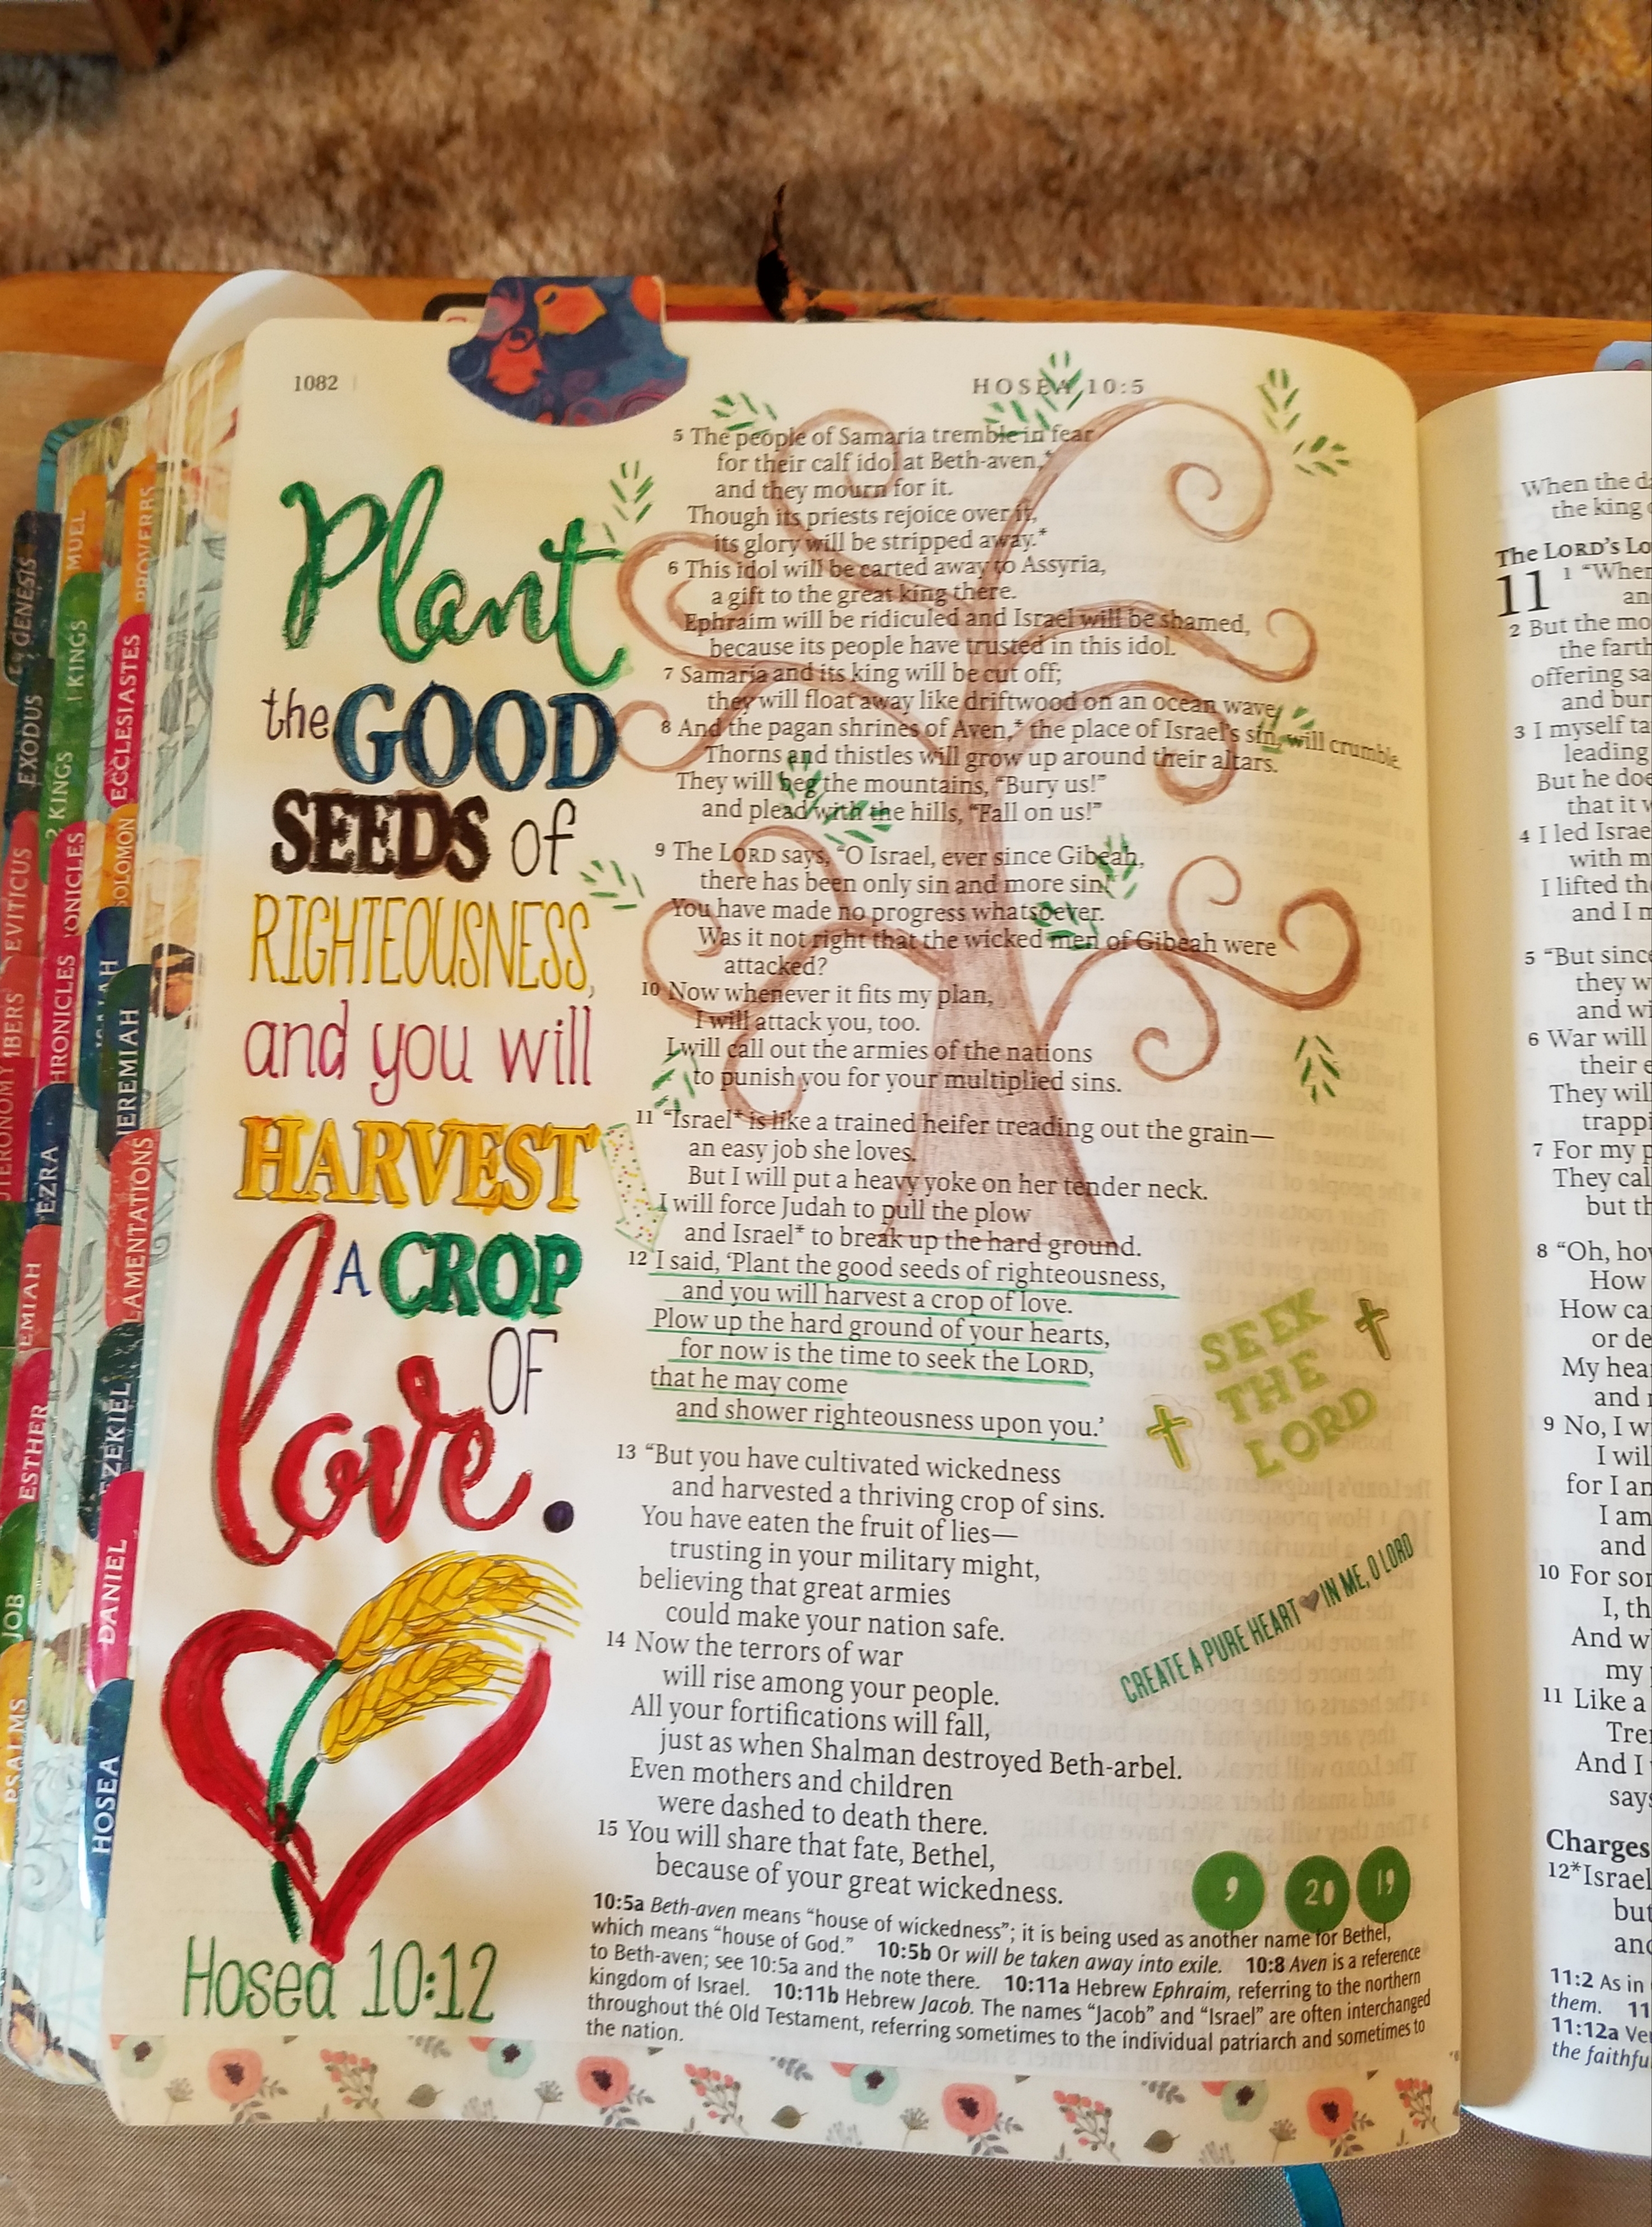 1082
HOSEA 10:5
Plant
the GOOD
SEEDS of
RIGHTEOUSNESS,
and you will
HARVEST
A CROP
OF
love.
Hosea 10:12
5 The people of Samaria tremble in fear
for their calf idol at Beth-aven,*
and they mourn for it.
Though its priests rejoice over it,
its glory will be stripped away.*
6 This idol will be carted away to Assyria,
a gift to the great king there.
Ephraim will be ridiculed and Israel will be shamed,
because its people have trusted in this idol.
7 Samaria and its king will be cut off;
they will float away like driftwood on an ocean wave.
8 And the pagan shrines of Aven,* the place of Israel's sin, will crumble.
Thorns and thistles will grow up around their altars.
They will beg the mountains, “Bury us!”
and plead with the hills, “Fall on us!”
9 The LORD says, “O Israel, ever since Gibeah,
there has been only sin and more sin!
You have made no progress whatsoever.
Was it not right that the wicked men of Gibeah were
attacked?
10 Now whenever it fits my plan,
I will attack you, too.
I will call out the armies of the nations
to punish you for your multiplied sins.
11 “Israel* is like a trained heifer treading out the grain—
an easy job she loves.
But I will put a heavy yoke on her tender neck.
I will force Judah to pull the plow
and Israel* to break up the hard ground.
12 I said, ‘Plant the good seeds of righteousness,
and you will harvest a crop of love.
Plow up the hard ground of your hearts,
for now is the time to seek the LORD,
that he may come
and shower righteousness upon you.’
13 “But you have cultivated wickedness
and harvested a thriving crop of sins.
You have eaten the fruit of lies—
trusting in your military might,
believing that great armies
could make your nation safe.
14 Now the terrors of war
will rise among your people.
All your fortifications will fall,
just as when Shalman destroyed Beth-arbel.
Even mothers and children
were dashed to death there.
15 You will share that fate, Bethel,
because of your great wickedness.
SEEK
THE
LORD
CREATE A PURE HEART IN ME, O LORD
9 20 19
10:5a Beth-aven means “house of wickedness”; it is being used as another name for Bethel,
which means “house of God.” 10:5b Or will be taken away into exile. 10:8 Aven is a reference
to Beth-aven; see 10:5a and the note there. 10:11a Hebrew Ephraim, referring to the northern
kingdom of Israel. 10:11b Hebrew Jacob. The names “Jacob” and “Israel” are often interchanged
throughout the Old Testament, referring sometimes to the individual patriarch and sometimes to
the nation.
GENESIS
EXODUS
1 KINGS
2 KINGS
PROVERBS
ECCLESIASTES
SOLOMON
JEREMIAH
LAMENTATIONS
EZRA
ESTHER
JOB
PSALMS
EZEKIEL
DANIEL
HOSEA
When the
the king
The LORD's
11 1
2 But the
the
offering
and
3 I myself
leading
But he
that it
4 I led
with
I lifted
and I
5 “But since
they
and
6 War will
their
They will
7 For my
They
but
8 “Oh,
How
How
or
My
and
9 No, I
I will
for I
I am
and
10 For
I,
And
my
11 Like a
And I
Charges
12*Israel
but
11:2 As in
them.
11:12a
the